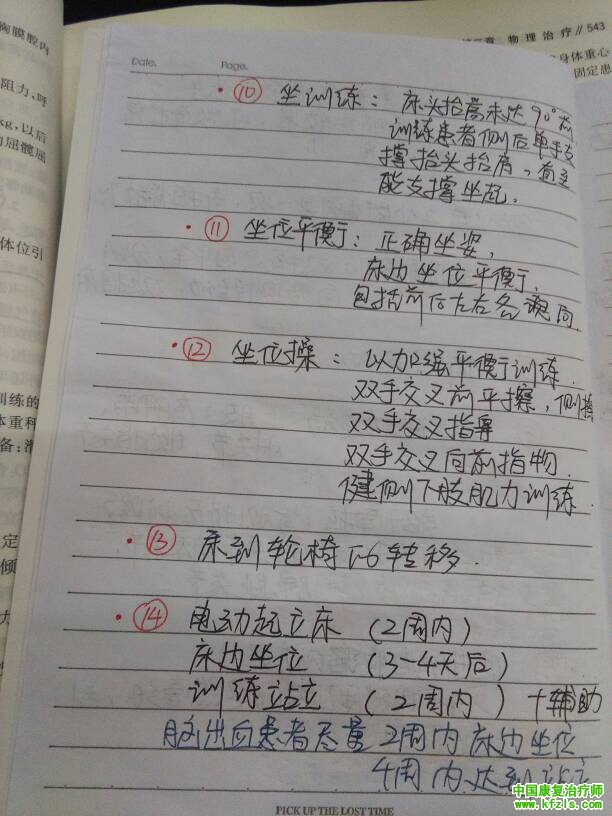 第三章 物理治疗 // 543
胸膜腔内
身体重心
固定患
阻力，呼
kg，以后
屈髋屈
体位引
训练的
体重秤
备：滑
定
倾
力
Date.
Page.
⑩ 坐训练：床头抬高未达90°前
训练患者侧后单手支
撑抬头抬肩，直至
能支撑坐起.
⑪ 坐位平衡：正确坐姿，
床边坐位平衡.
包括前后左右各方向
⑫ 坐位操：以加强平衡训练.
双手交叉前平擦，侧擦
双手交叉指鼻
双手交叉向前指物.
健侧下肢肌力训练.
⑬ 床到轮椅的转移.
⑭ 电动起立床（2周内）
床边坐位（3-4天后）
训练站立（2周内）+辅助
脑出血患者尽量2周内床边坐位
4周内达到站立
PICK UP THE LOST TIME
中国康复治疗师
www.kfzls.com